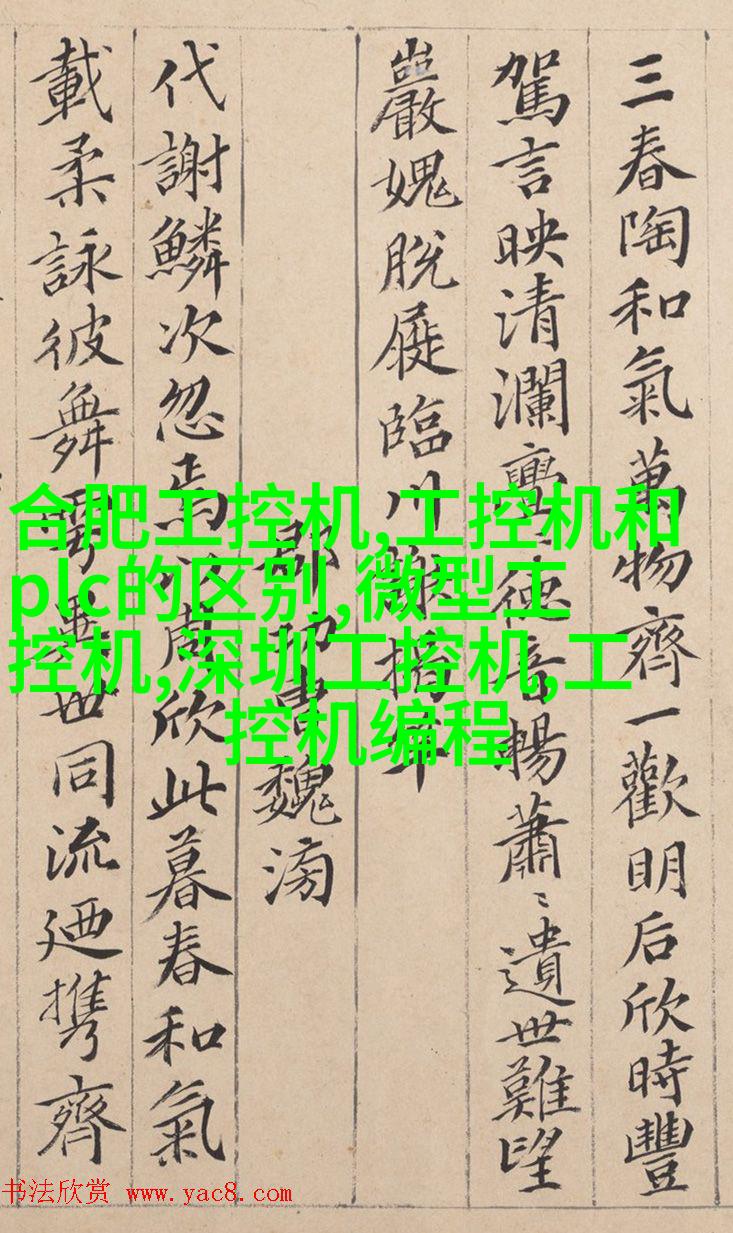 三春陶和氣萬物齊一歡明后欣時豐
駕言映清瀾亹〻德音暢蕭〻遺世難望
巖愧脫屣臨川謝揭竿
郡功曹魏滂
代謝鱗次忽焉以周欣此暮春和氣
載柔詠彼舞雩異世同流廼携齊
合肥工控机,工控机和
plc的区别,微型工
控机,深圳工控机,工
控机编程
书法欣赏 www.yac8.com